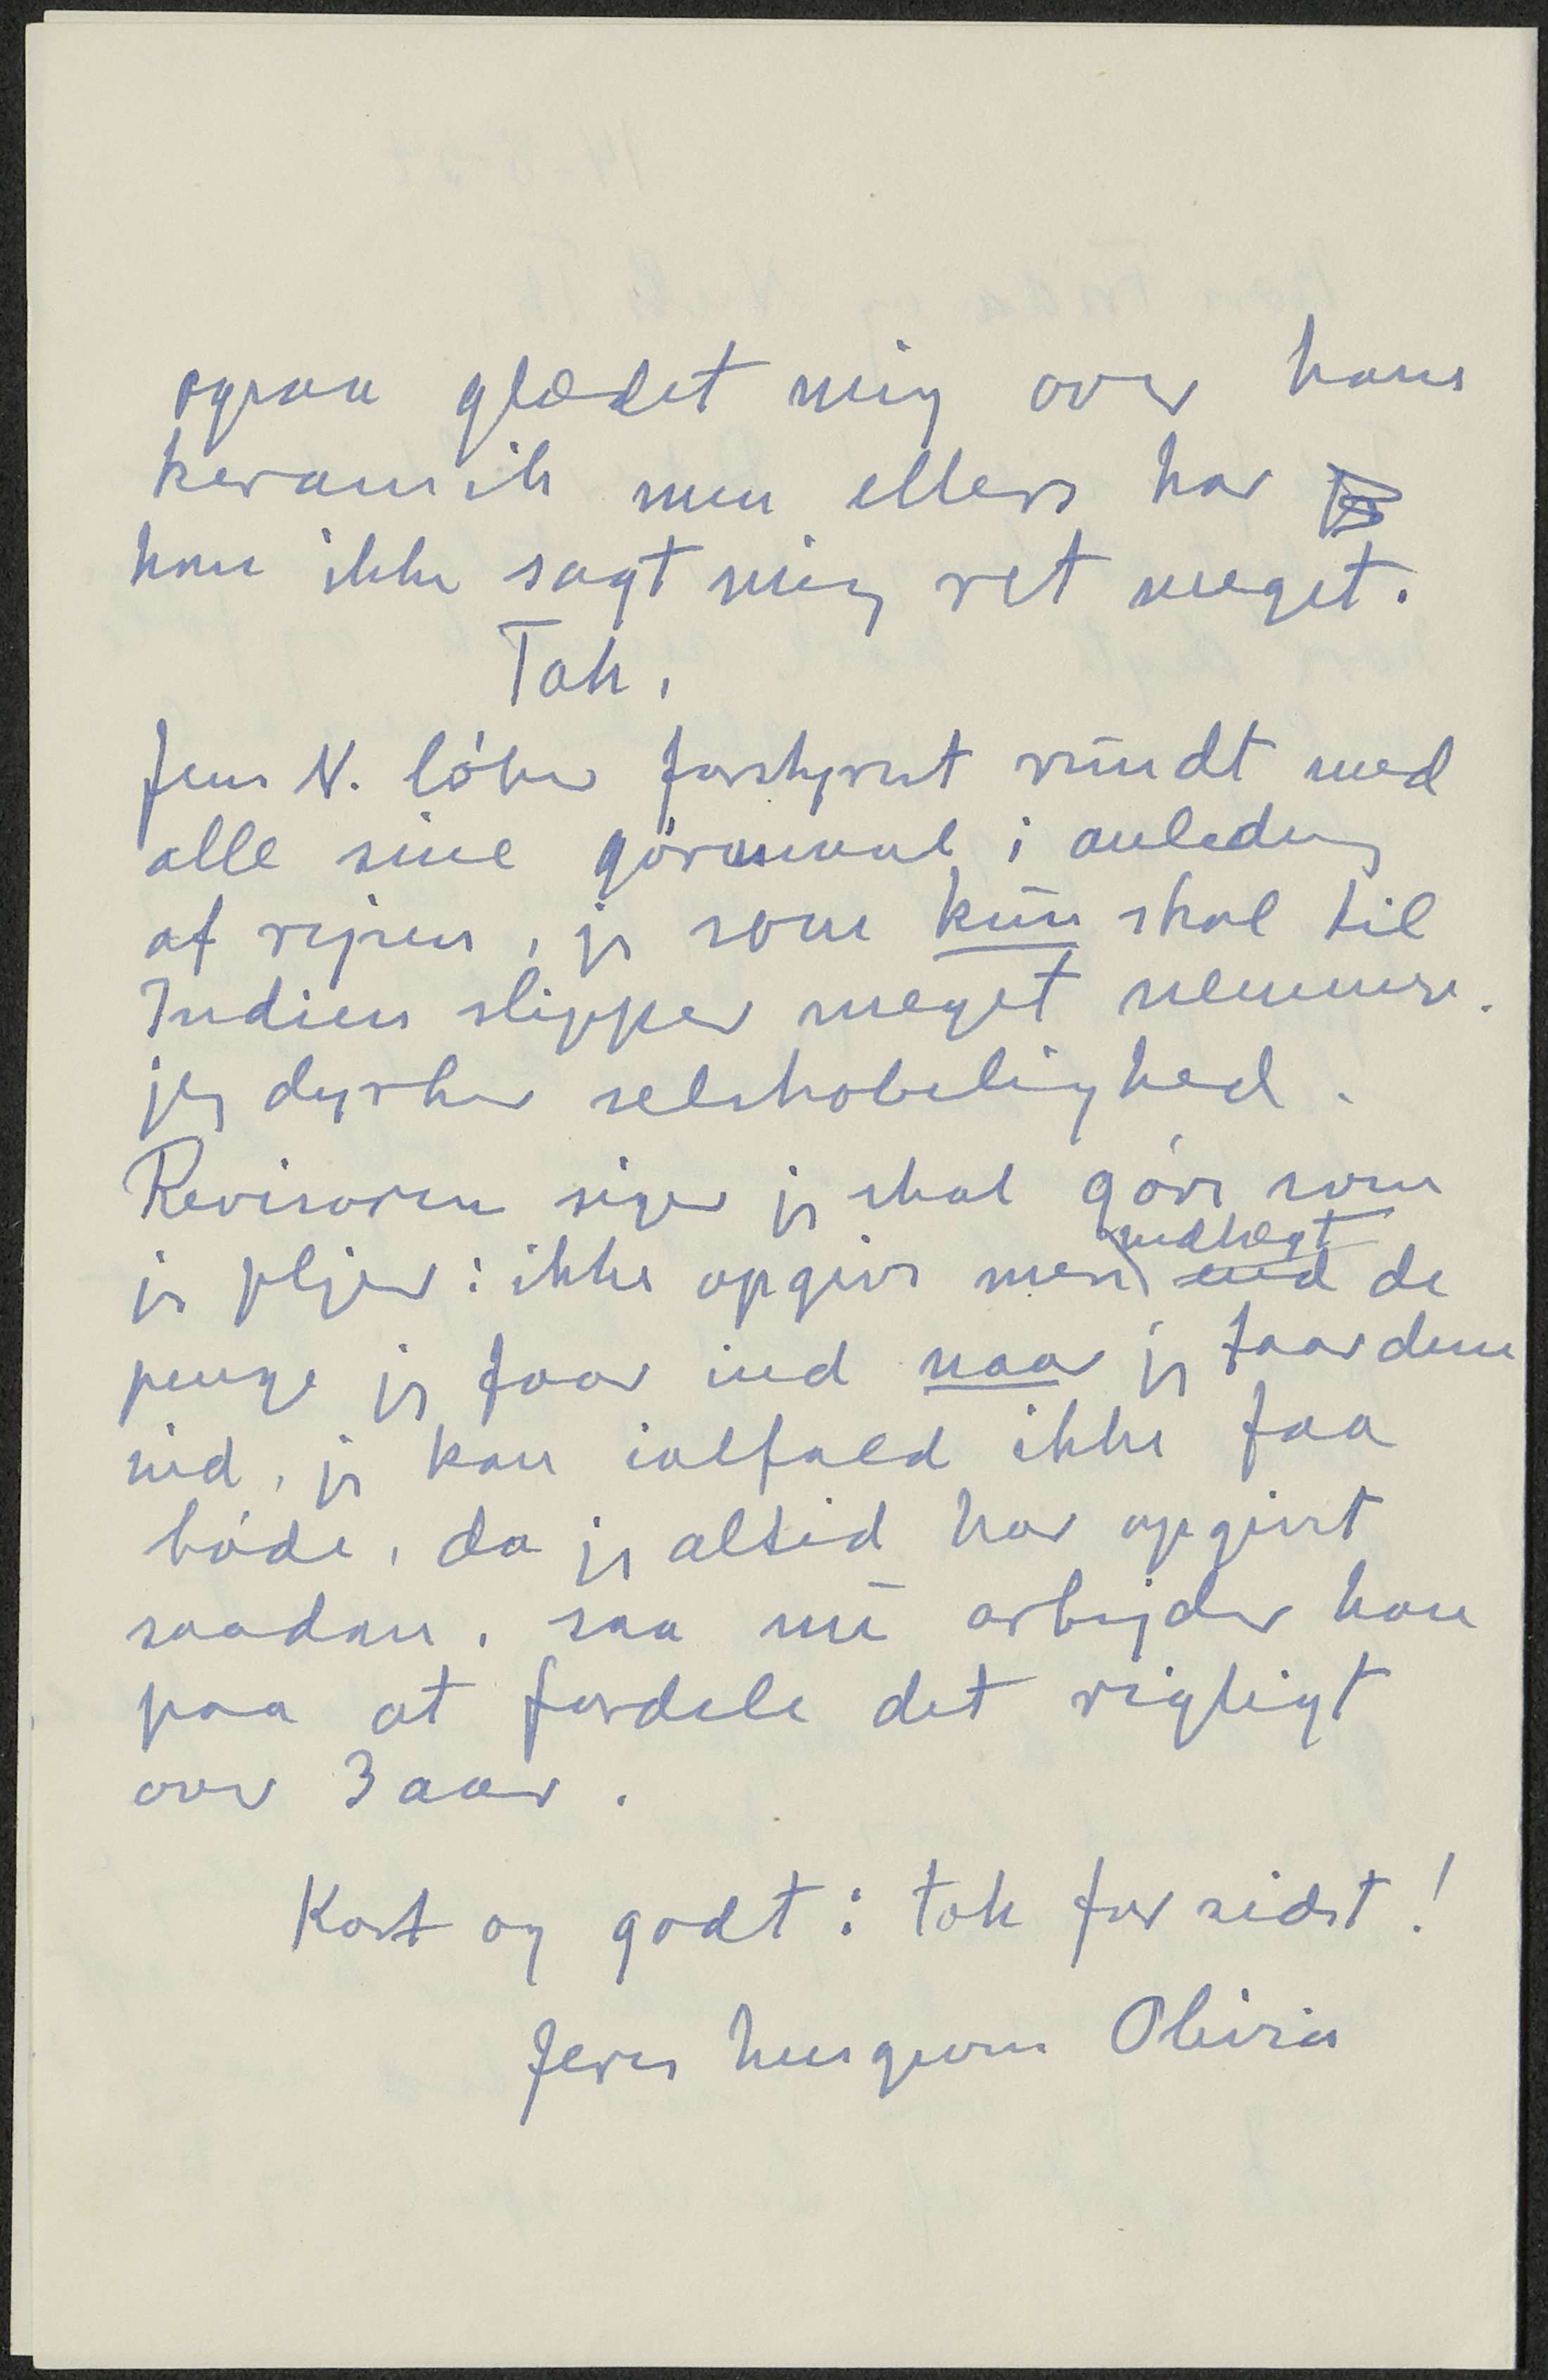 ogsaa glædet mig over hans
keramik men ellers har
han ikke sagt mig ret meget.
Tak.
Jens N. løber forstyrret rundt med
alle sine gøremaal i anledning
af rejsen, jeg som kun skal til
Indien slipper meget nemmere.
jeg dyrker selskabelighed.
Revisoren siger jeg skal gøre som
jeg plejer: ikke opgive men indtægt de
penge jeg faar ind naar jeg faar dem
ind, jeg kan ialfald ikke faa
bøde, da jeg altid har opgivet
saadan. saa nu arbejder han
paa at fordele det rigtigt
over 3 aar.
Kort og godt: tak for sidst!
Jeres hengivne Olivia